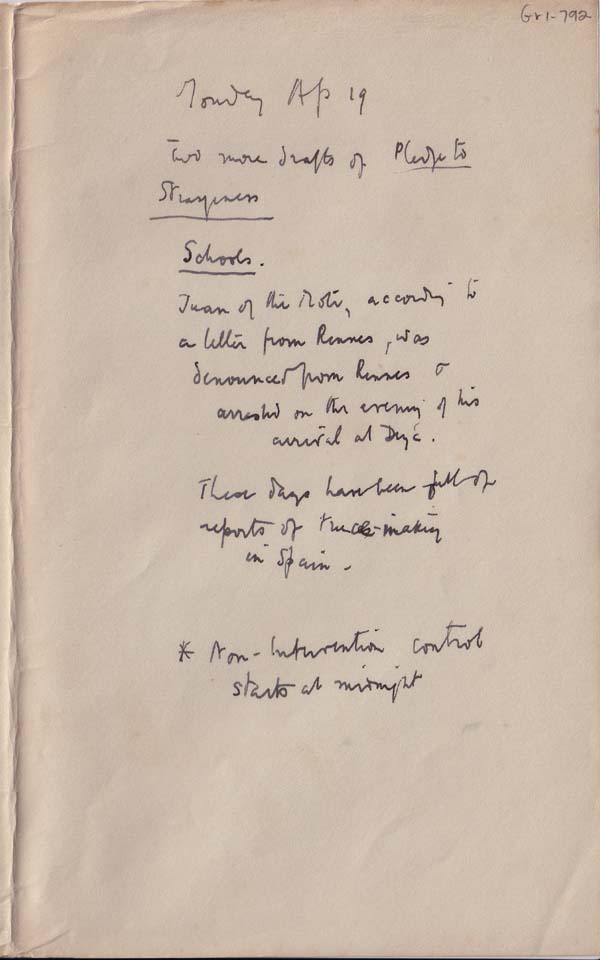 Gr1-792
Monday Ap 19
Two more drafts of Pledge to
Strangeness
Schools.
Juan of the Moto, according to
a letter from Rennes, was
denounced from Rennes &
arrested on the evening of his
arrival at Deyá.
These days have been full of
reports of truce-making
in Spain.
* Non-Intervention control
starts at midnight